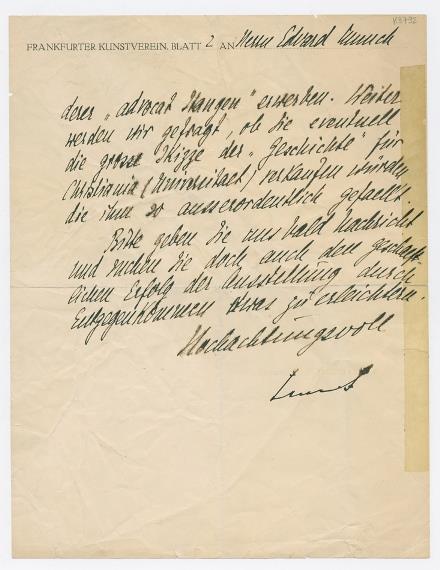 K3792
FRANKFURTER KUNSTVEREIN. BLATT 2 AN Herrn Edvard Munch
derer „advocat Stangen" erwerben. Weiter
werden wir gefragt, ob Sie eventuell
die grosse Skizze der „Geschichte" für
Christiania (Universitaet) verkaufen würden
die ihm so ausserordentlich gefaellt.
Bitte geben Sie uns bald Nachricht
und suchen Sie doch auch den geschäft-
lichen Erfolg der Ausstellung durch
Entgegenkommen etwas zu erleichtern.
Hochachtungsvoll